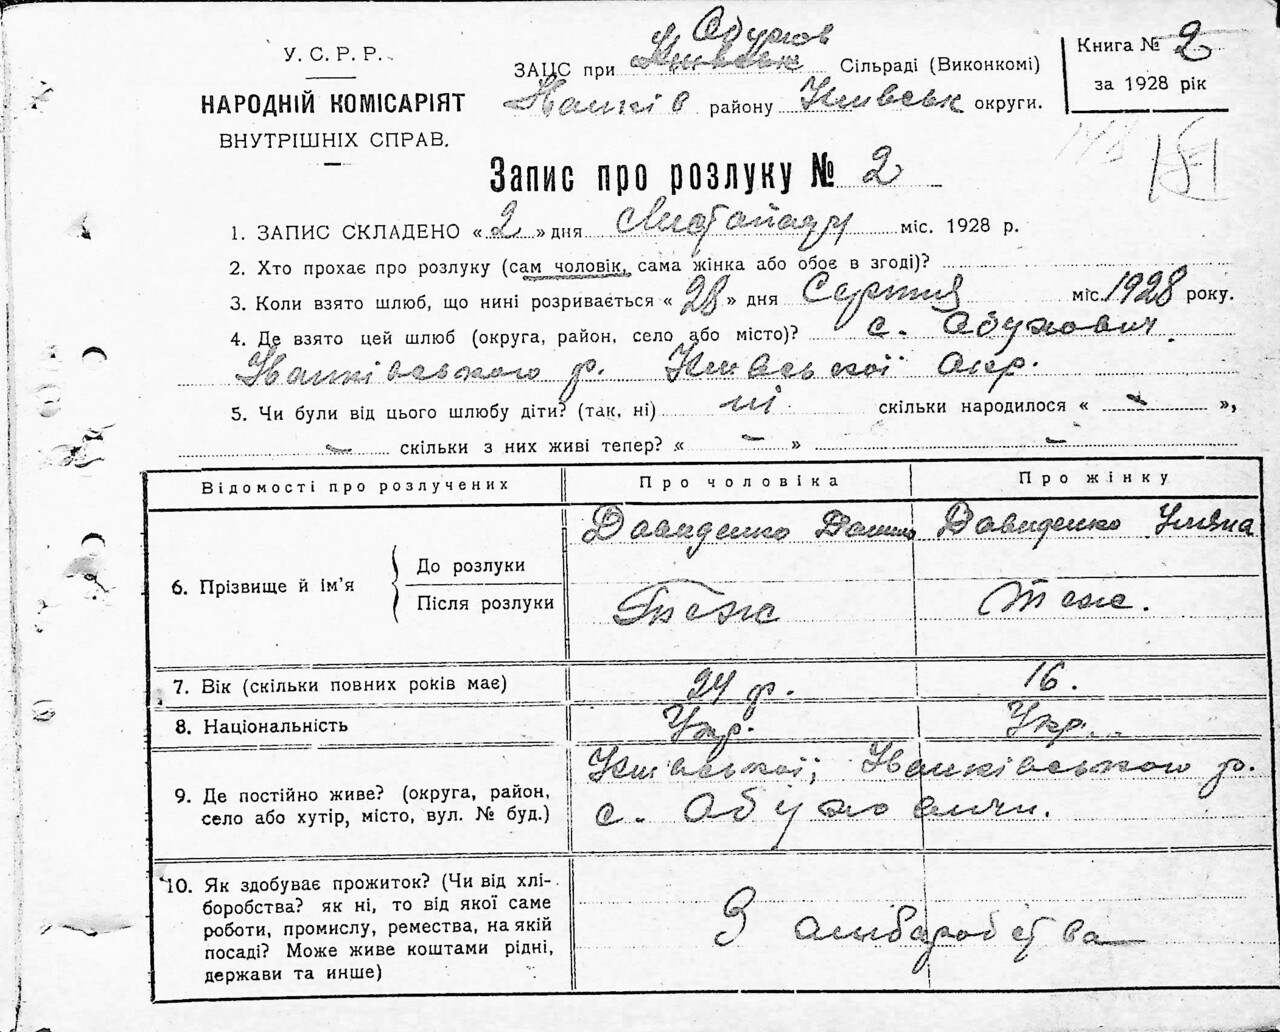 У. С. Р. Р.
НАРОДНІЙ КОМІСАРІЯТ
ВНУТРІШНІХ СПРАВ.
Обухов
ЗАЦС при Київськ Сільраді (Виконкомі)
Іванків району Київськ округи.
Книга № 2
за 1928 рік
Запис про розлуку № 2
1. ЗАПИС СКЛАДЕНО «2» дня Листопаду міс. 1928 р.
2. Хто прохає про розлуку (сам чоловік, сама жінка або обоє в згоді)?
3. Коли взято шлюб, що нині розривається «28» дня Серпня міс. 1928 року.
4. Де взято цей шлюб (округа, район, село або місто)? с. Обухович
Іванківського р. Київської окр.
5. Чи були від цього шлюбу діти? (так, ні) ні скільки народилося « - »,
- скільки з них живі тепер? « - » -
Відомості про розлучених Про чоловіка Про жінку
6. Прізвище й ім'я
До розлуки Давиденко Данило Давиденко Уляна
Після розлуки Теж теж.
7. Вік (скільки повних років має) 24 р. 16.
8. Національність Укр. Укр.
9. Де постійно живе? (округа, район, село або хутір, місто, вул. № буд.)
Київської, Іванківського р.
с. Обуховичи.
10. Як здобуває прожиток? (Чи від хлі-
боробства? як ні, то від якої саме
роботи, промислу, ремества, на якій
посаді? Може живе коштами рідні,
держави та инше)
З